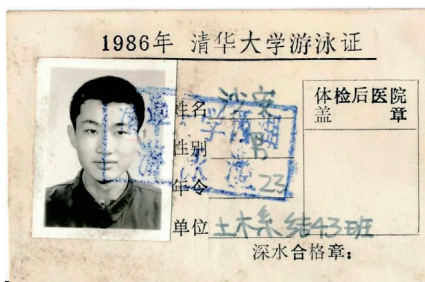 1986年 清华大学游泳证
姓名 沙安
性别 男
年令 23
单位 土木系结43班
体检后医院
盖 章
深水合格章：